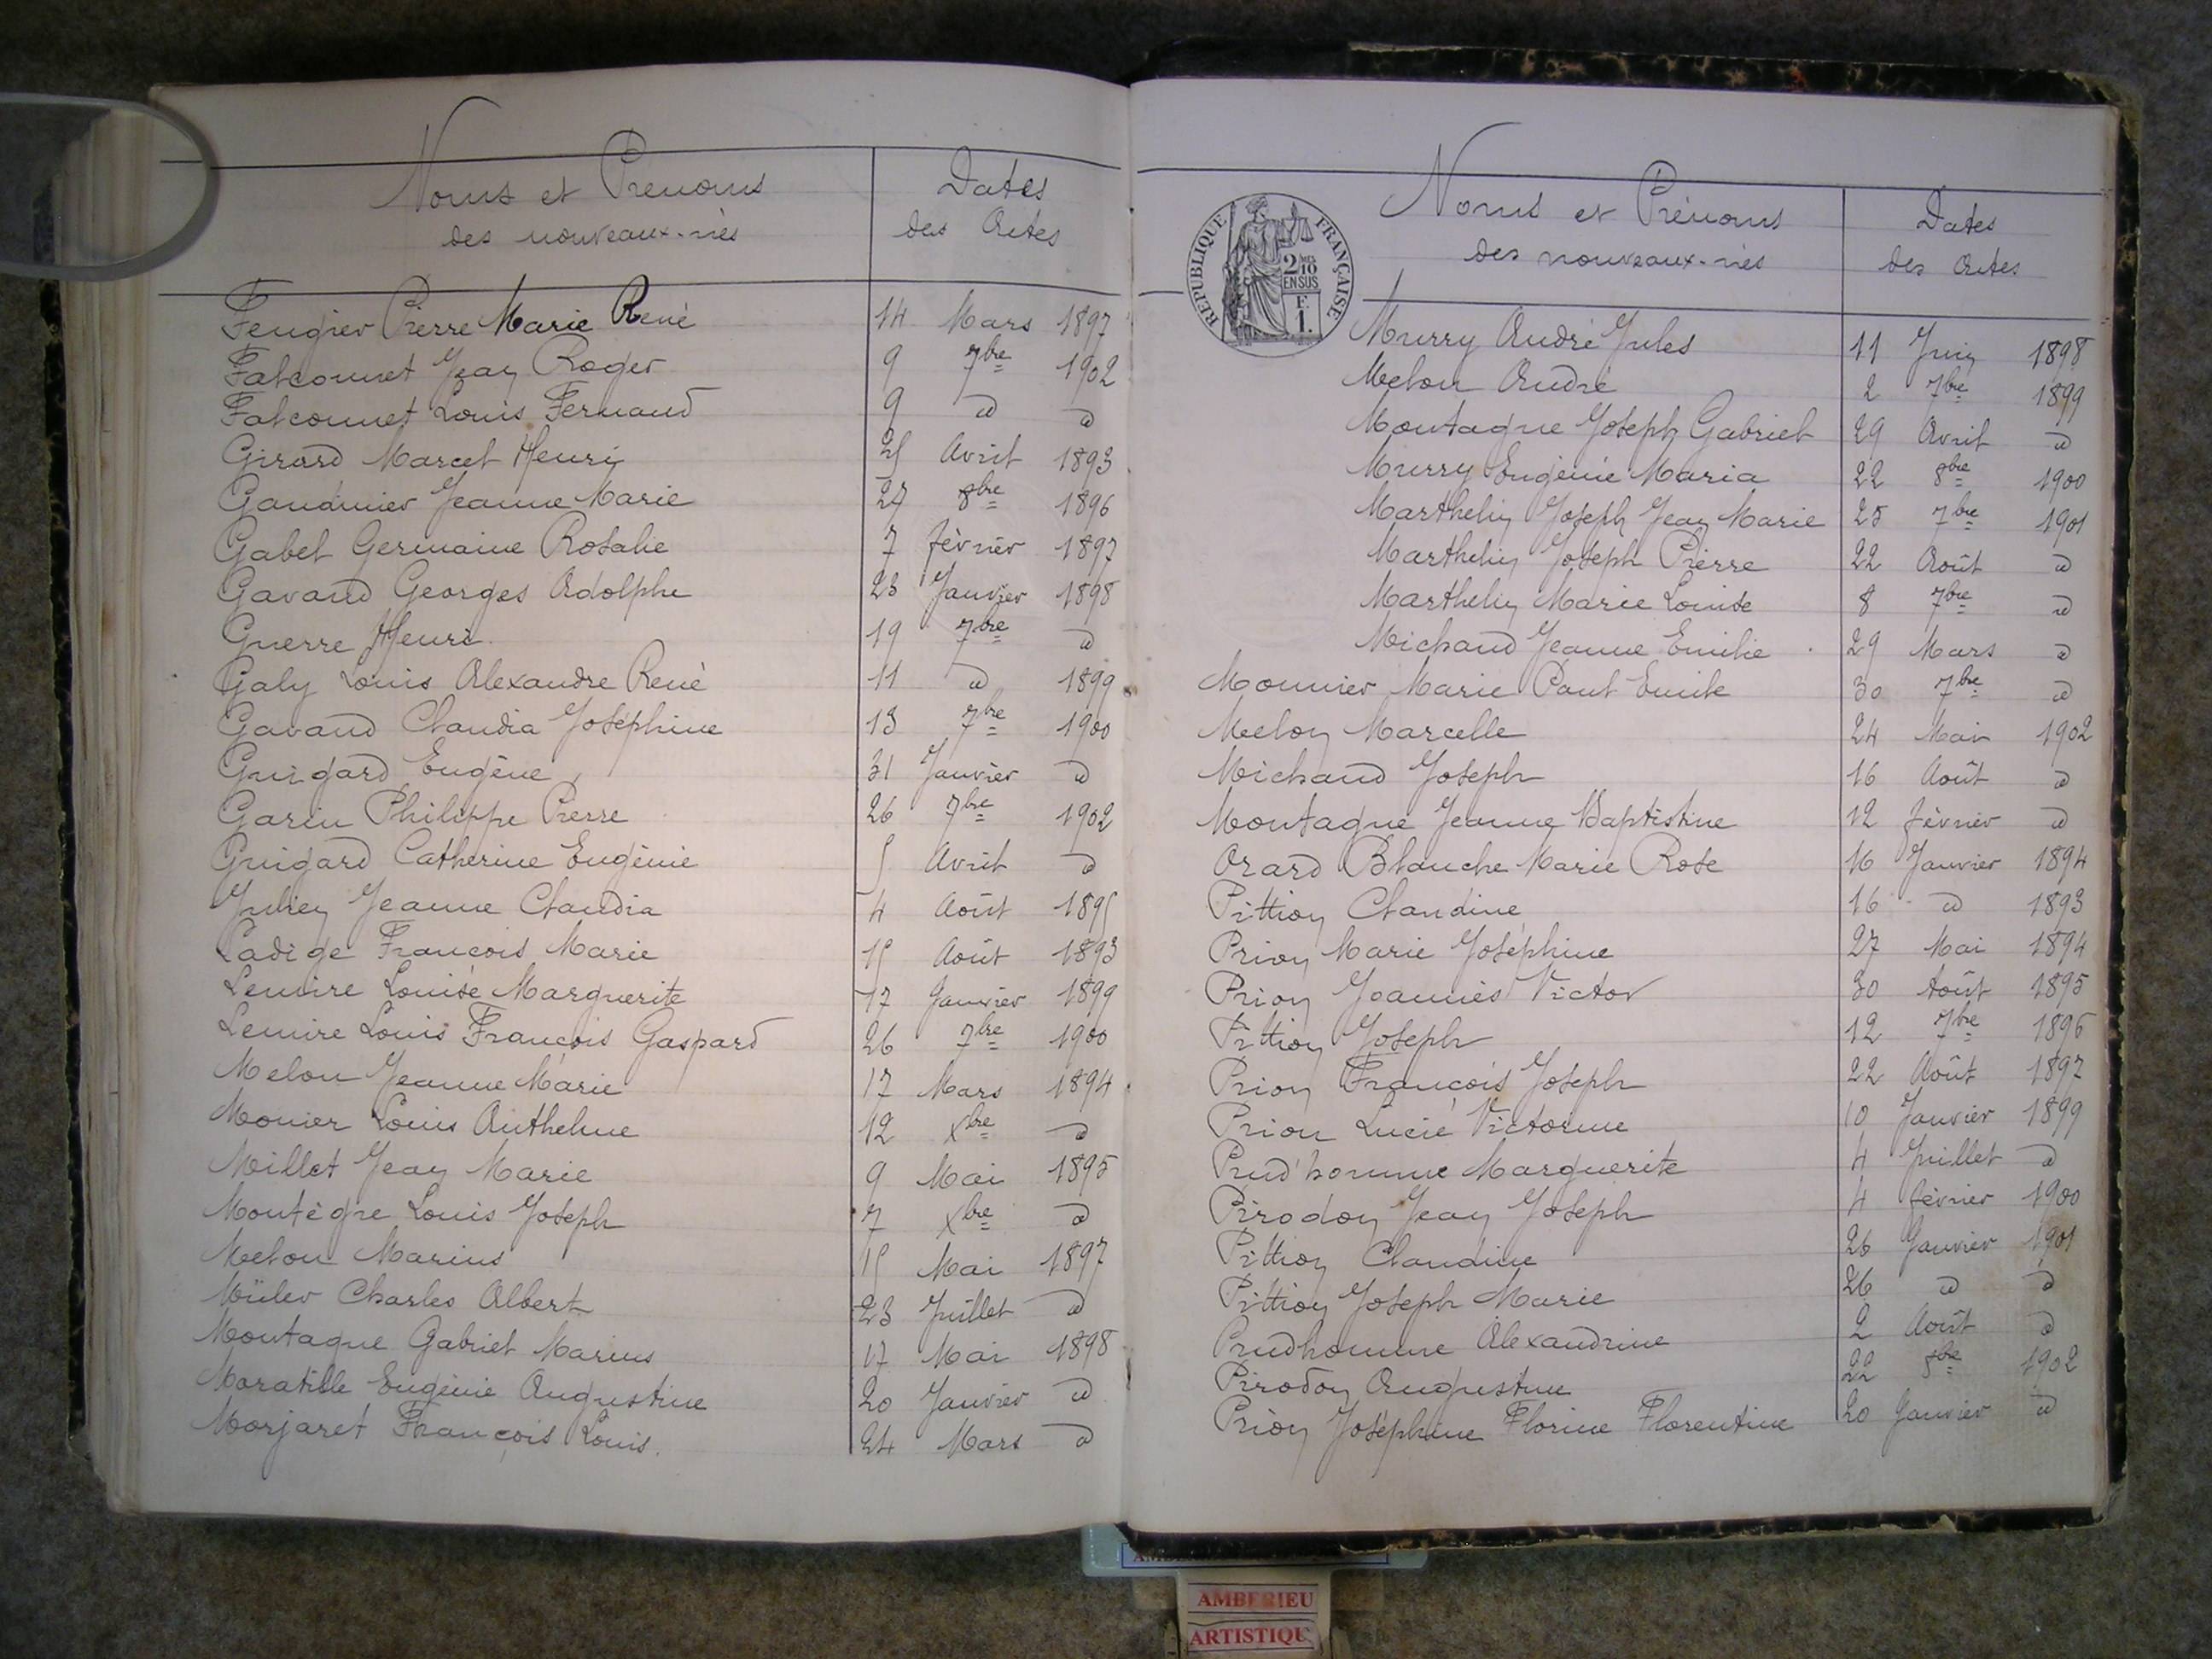 Noms et Prenoms
des nouveaux-nés
Dates
des Actes
Feugier Pierre Marie René 14 Mars 1897
Falconnet Jean Roger 9 7bre 1902
Falconnet Louis Fernand 9 d d
Girard Marcel Henri 25 Avril 1893
Gaudinier Jeanne Marie 27 8bre 1896
Gabel Germaine Rosalie 7 février 1897
Gavand Georges Adolphe 23 Janvier 1898
Guerre Henri 19 7bre d
Galy Louis Alexandre René 11 d 1899
Gavand Claudia Joséphine 13 7bre 1900
Guigard Eugène 31 Janvier d
Garin Philippe Pierre 26 7bre 1902
Guigard Catherine Eugénie 5 Avril d
Julien Jeanne Claudia 4 Août 1895
Ladige François Marie 15 Août 1893
Lemire Louise Marguerite 17 Janvier 1899
Lemire Louis François Gaspard 26 7bre 1900
Melon Jeanne Marie 17 Mars 1894
Monier Louis Anthelme 12 Xbre d
Millet Jean Marie 9 Mai 1895
Montègre Louis Joseph 7 Xbre d
Melon Marius 15 Mai 1897
Müler Charles Albert 23 Juillet d
Montagne Gabriel Marius 17 Mai 1898
Moratille Eugénie Augustine 20 Janvier d
Morjaret François Louis. 24 Mars d
RÉPUBLIQUE FRANÇAISE
2/10
EN SUS
F.
1.
Noms et Prénoms
des nouveaux-nés
Dates
des Actes
Murry André Jules 11 Juin 1898
Melon André 2 7bre 1899
Montagne Joseph Gabriel 29 Avril d
Murry Eugénie Maria 22 8bre 1900
Marthelin Joseph Jean Marie 25 7bre 1901
Marthelin Joseph Pierre 22 Août d
Marthelin Marie Louise 8 7bre d
Michaud Jeanne Emilie 29 Mars d
Monnier Marie Paul Emile 30 7bre d
Melon Marcelle 24 Mai 1902
Michaud Joseph 16 Août d
Montagne Jeanne Baptistine 12 février d
Orard Blanche Marie Rose 16 Janvier 1894
Pittion Claudine 16 d 1893
Prion Marie Joséphine 27 Mai 1894
Prion Joannès Victor 30 Août 1895
Pittion Joseph 12 7bre 1896
Prion François Joseph 22 Août 1897
Prion Lucie Victorine 10 Janvier 1899
Prud'homme Marguerite 4 Juillet d
Pirodon Jean Joseph 4 février 1900
Pittion Claudine 26 Janvier 1901
Pittion Joseph Marie 26 d d
Prudhomme Alexandrine 2 Août d
Pirodon Augustine 22 8bre 1902
Prion Joséphine Florine Florentine 20 Janvier d
AMBERIEU
ARTISTIQU